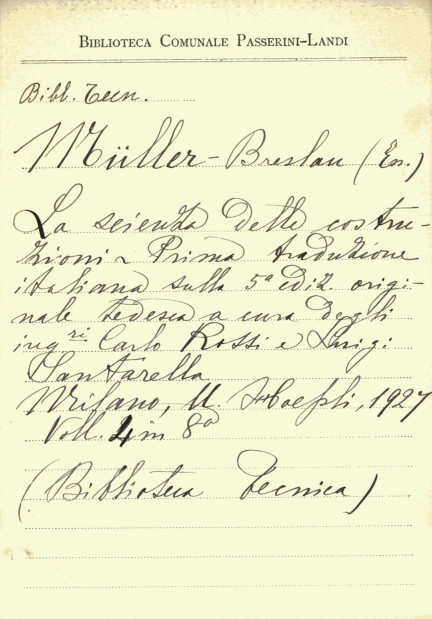 BIBLIOTECA COMUNALE PASSERINI-LANDI
Bibl. Tecn.
Müller-Breslau (En.)
La scienza delle costru-
zioni - Prima traduzione
italiana sulla 5ª ediz. origi-
nale tedesca a cura degli
ingri Carlo Rossi e Luigi
Santarella
Milano, U. Hoepli, 1927
Voll. 4 in 8º
(Biblioteca Tecnica)